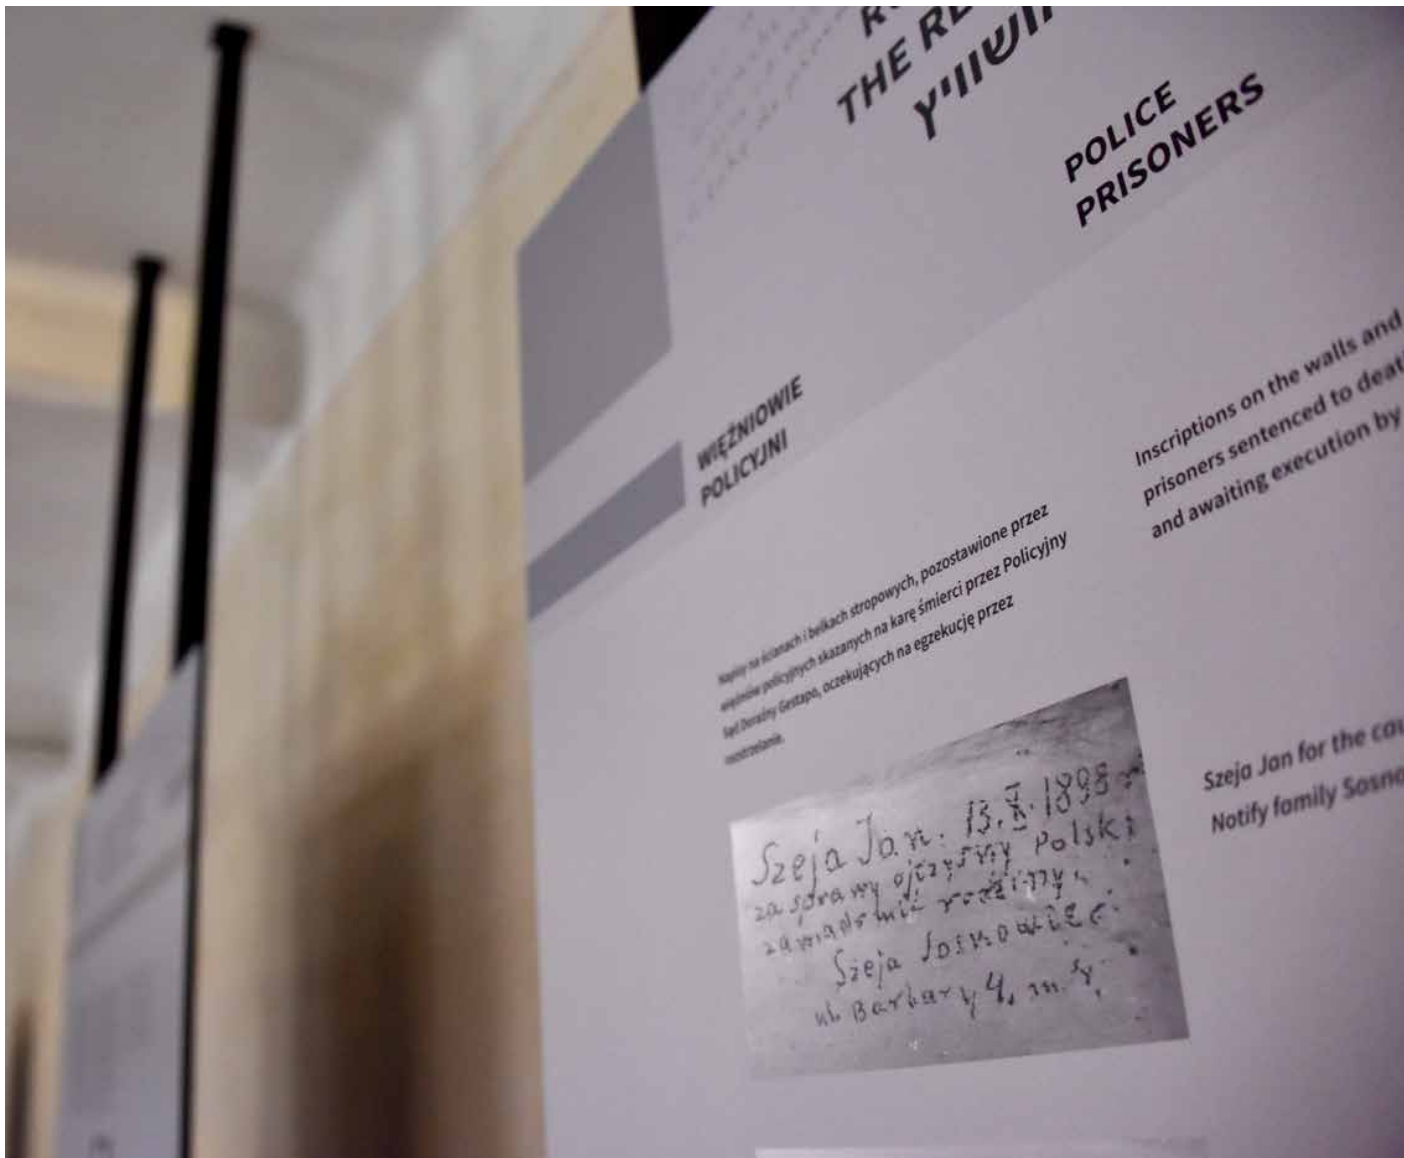 THE RE
ושוויץ
POLICE
PRISONERS
WIĘŹNIOWIE
POLICYJNI
Napisy na ścianach i belkach stropowych, pozostawione przez
więźniów policyjnych skazanych na karę śmierci przez Policyjny
Sąd Doraźny Gestapo, oczekujących na egzekucję przez
rozstrzelanie.
Inscriptions on the walls and
prisoners sentenced to deat
and awaiting execution by
Szeja Jan. 13.X.1898 r
za sprawy ojczyzny Polski
zawiadomić rodziny.
Szeja Sosnowiec
ul. Barbary 4. m.
Szeja Jan for the cau
Notify family Sosno